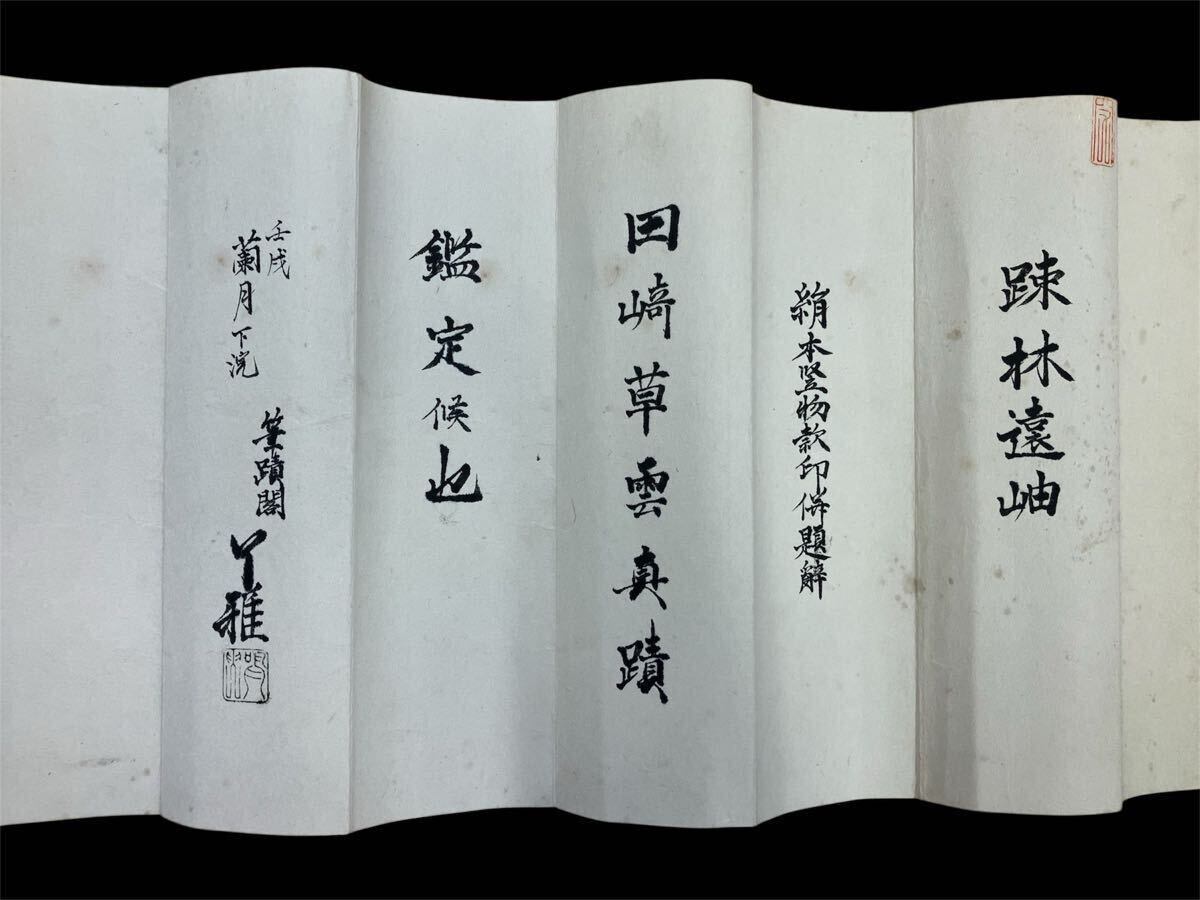 踈林遠岫
絹本竪物款印併題辞
田﨑草雲真蹟
鑑定候也
壬戌
蘭月下浣
筆蹟閣
丫雅